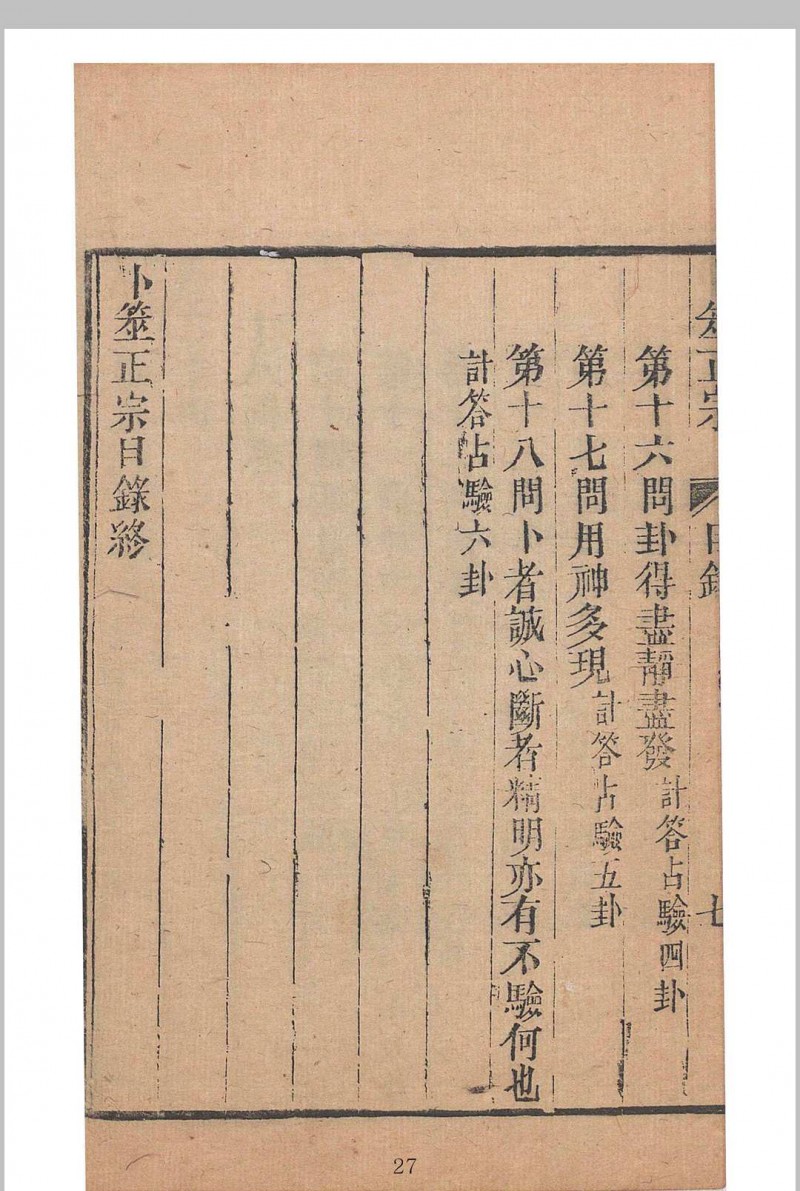 筮正宗 目錄 七
第十六問卦得盡靜盡發計答占驗四卦
第十七問用神多現計答占驗五卦
第十八問卜者誠心斷者精明亦有不驗何也
計答占驗六卦
卜筮正宗目錄終
27